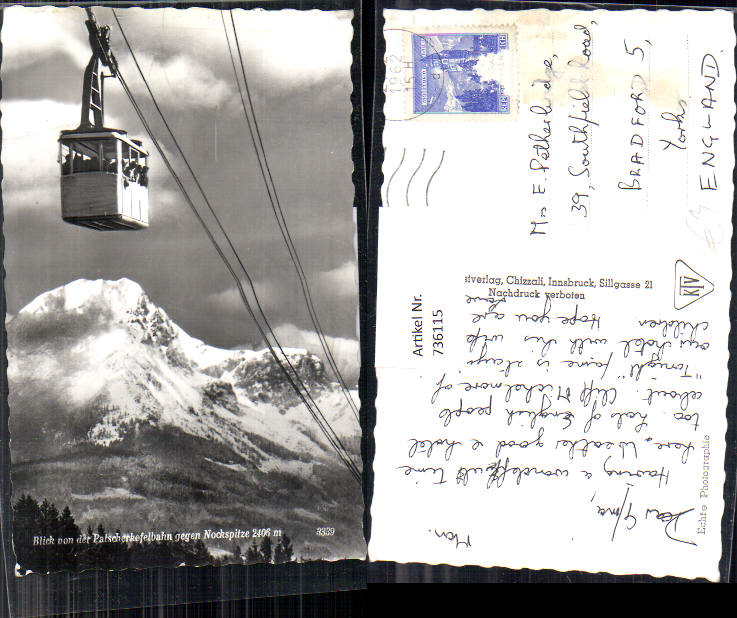 Blick von der Patscherkofelbahn gegen Nockspitze 2406 m
3339
1962
15 H
Mrs E. Petherbridge,
39, Southfield Road,
BRADFORD 5,
Yorks
ENGLAND.
KTV
stverlag, Chizzali, Innsbruck, Sillgasse 21
Nachdruck verboten
Echte Photographie
Artikel Nr.
736115
Mon.
Dear G/ma,
Having a wonderful time
here. Weather good & hotel
too. Lots of English people
about. Cliff Michelmore of
"Tonight" fame is staying
our hotel with his wife
children. Hope you are